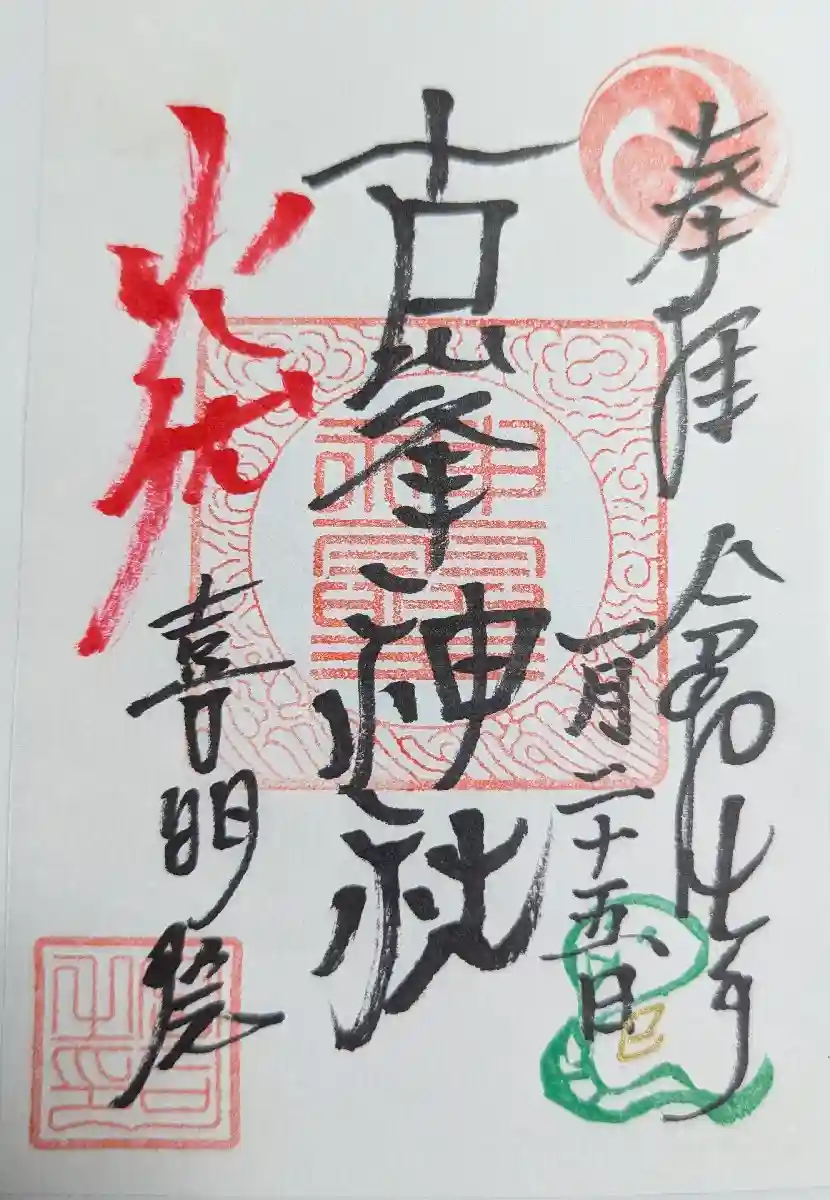 奉拝 令和七年
一月二十五日
古峯神社
喜明祭
巳